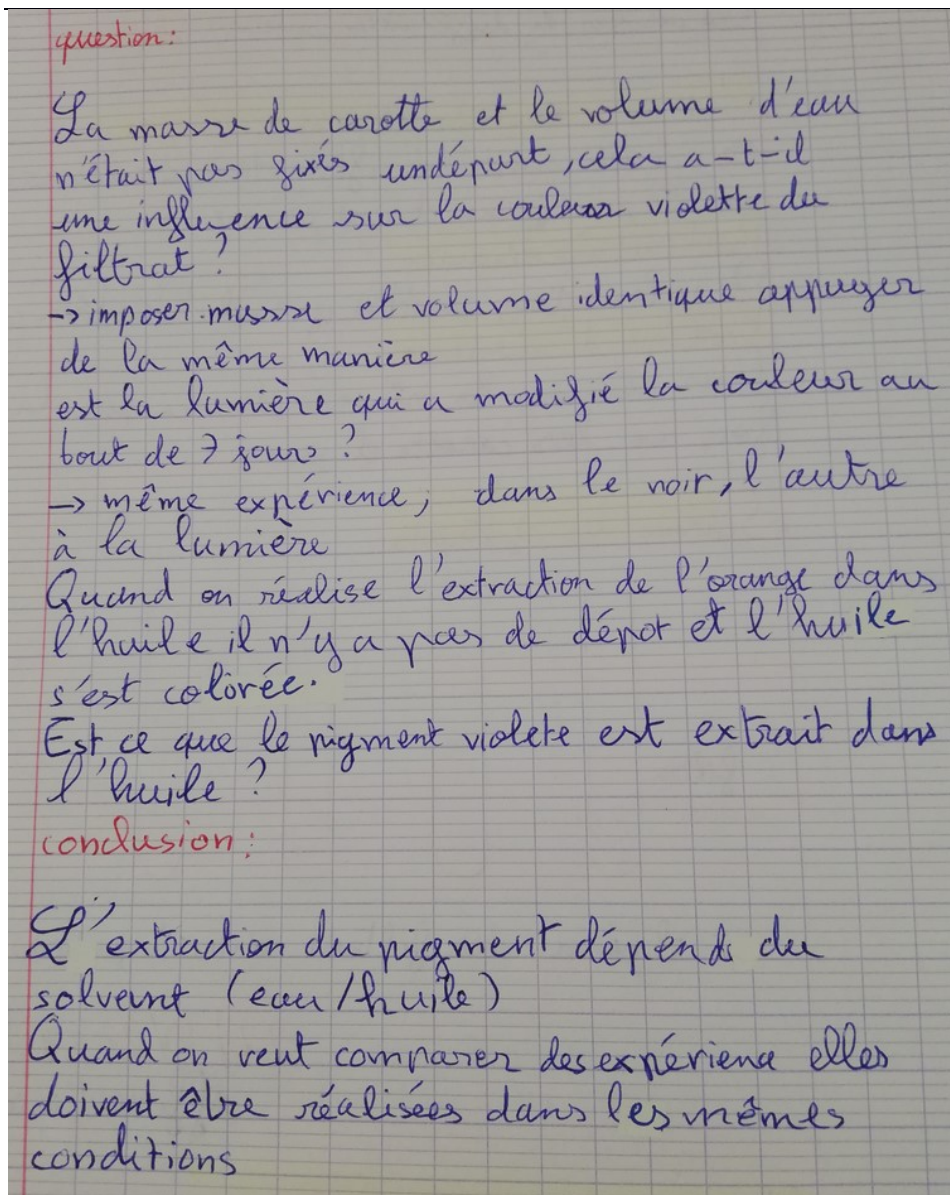 question:
La masse de carotte et le volume d'eau
n'était pas fixés undépart, cela a-t-il
une influence sur la couleur violette du
filtrat ?
-> imposer masse et volume identique appuyer
de la même manière
est la lumière qui a modifié la couleur au
bout de 7 jours ?
-> même expérience, dans le noir, l'autre
à la lumière
Quand on réalise l'extraction de l'orange dans
l'huile il n'y a pas de dépot et l'huile
s'est colorée.
Est ce que le pigment violete est extrait dans
l'huile ?
conclusion:
L'extraction du pigment dépends du
solvant (eau/huile)
Quand on veut comparer des expérience elles
doivent être réalisées dans les mêmes
conditions